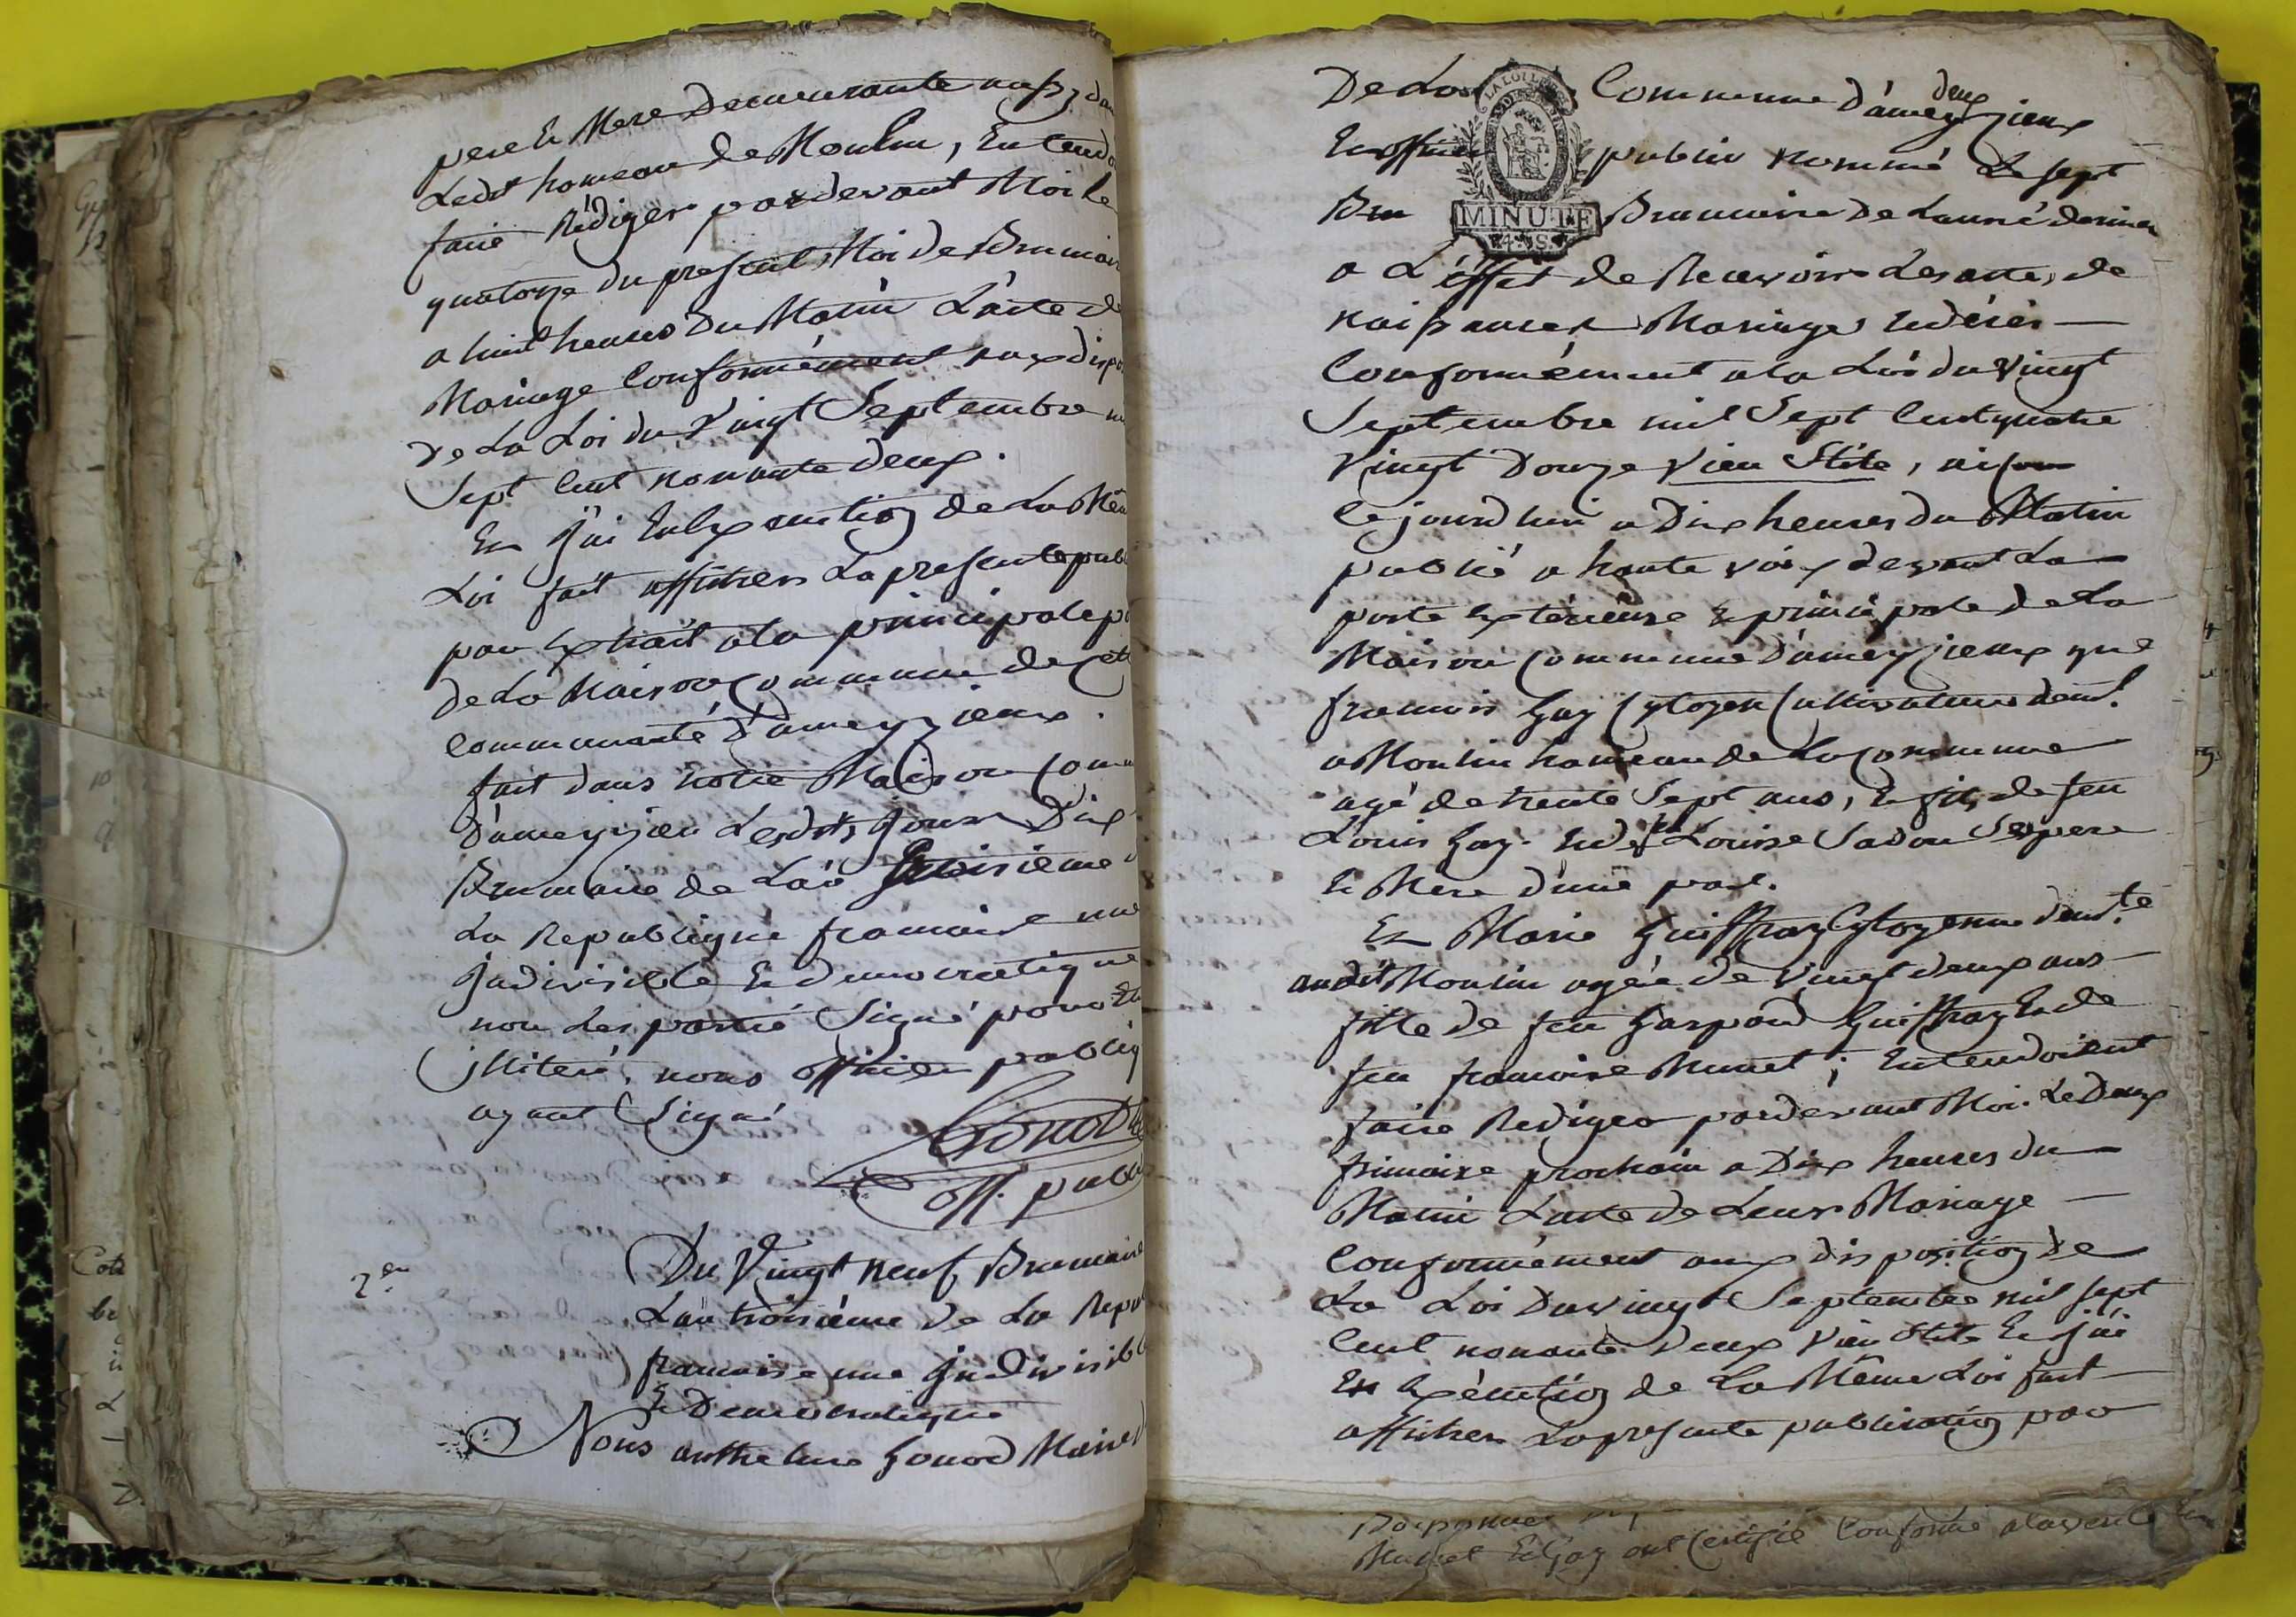 pere Et Mere Demeurante aussy dan
Ledit hameau de Moulin, Entend
faire Rédiger pardevant Moi le
quatorze du present Moi de Brumair
a huit heures du Matin L'acte de
Mariage Conformément aux disp
de La Loi du Vingt Septembre m
Sept Cent nonante deux.
Et J'ai En Exécution de La Mêm
Loi fait afficher La presente publ
par Extrait a la principale p
de La Maison Commune de Cet
Communauté d'ameyzieux.
fait dans notre Maison Comm
D'ameyzieu Lesdits Jour Dix
Brumaire de L'an troisieme d
La Republique francaise une
Indivisible Et democratique
non Les partie Signé pour Et
Illiteré, nous officier publiq
ayant Signé
Gonod
off. publ
2.en
Du Vingt neuf Brumaire
L'an troisième de La Repu
francaise une Indivisibl
Et Democratique
Nous anthelme Gonod Maire
De La Commune d'ameyzieux
deux
Et officier public nommé Le Sept
Bru Brumaire De L'année derniere
a L'éffet de Recevoir Les actes de
naissances Mariages Et décès
Conformément a la Loi du Vingt
Septembre mil Sept Cent quatre
Vingt Douze Vieu Stile, ai
Ce jourdhui a Dix heures du Matin
publié a haute voix devant La
porte Extérieure Et principale de La
Maison Commune D'ameyzieux que
francois Guy Cytoyen Cultivateur dem.t
a Moulin hameau de La Commune
agé de trente Sept ans, Et fils de feu
Louis Guy Et de Louise Sadou Ses pere
Et Mere d'une part.
Et Marie Guiffray Cytoyenne dem.te
audit Moulin agée de Vingt deux ans
fille de feu Gaspard Guiffray Et de
feu francoise Munet; Entendoient
faire Rediger pardevant Moi Le Deux
frimaire prochain a Dix heures du
Matin L'acte de Leur Mariage
Conformément aux disposition de
La Loi Du vingt Septembre mil sept
Cent nonante Deux Vieu Stile Et J'ai
En Exécution de La Même Loi fait
afficher La presente publication par
LA LOI LE
MINUTE
4. S.
Munet Et Guy ont Certifié Conforme a la verité